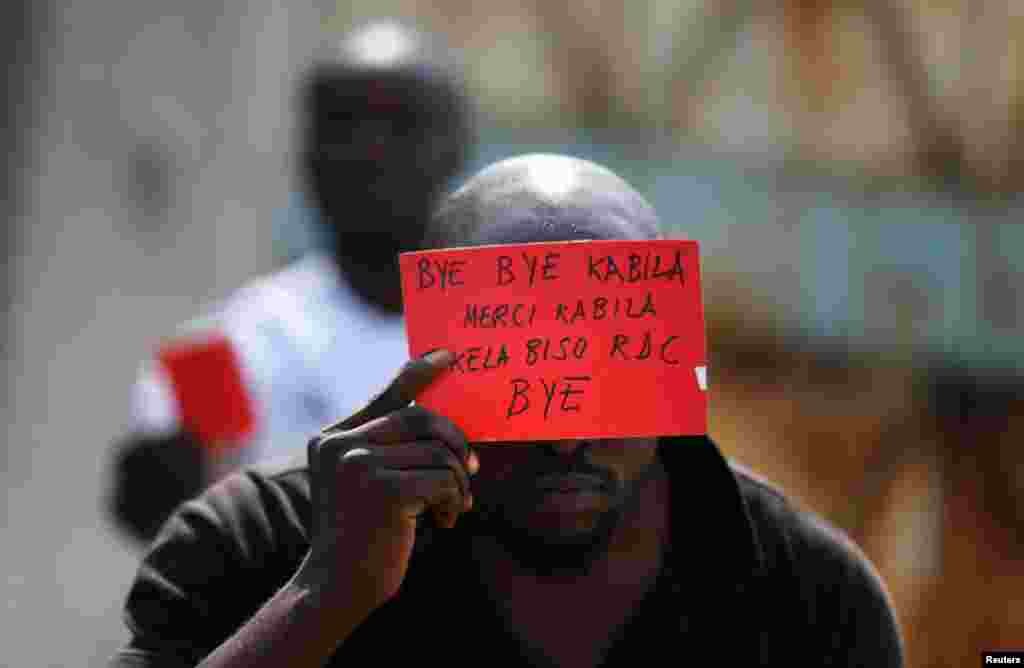 BYE BYE KABILA
MERCI KABILA
KELA BISO RDC
BYE
Reuters